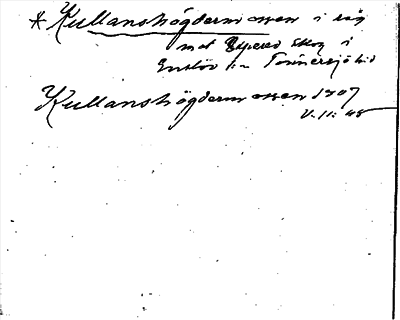 * Kullanshögdermossen i råg
mot Byered skog i
Enslöv o. Tönnersjö hd
Kullanshögdermossen 1907
V. 11: 48